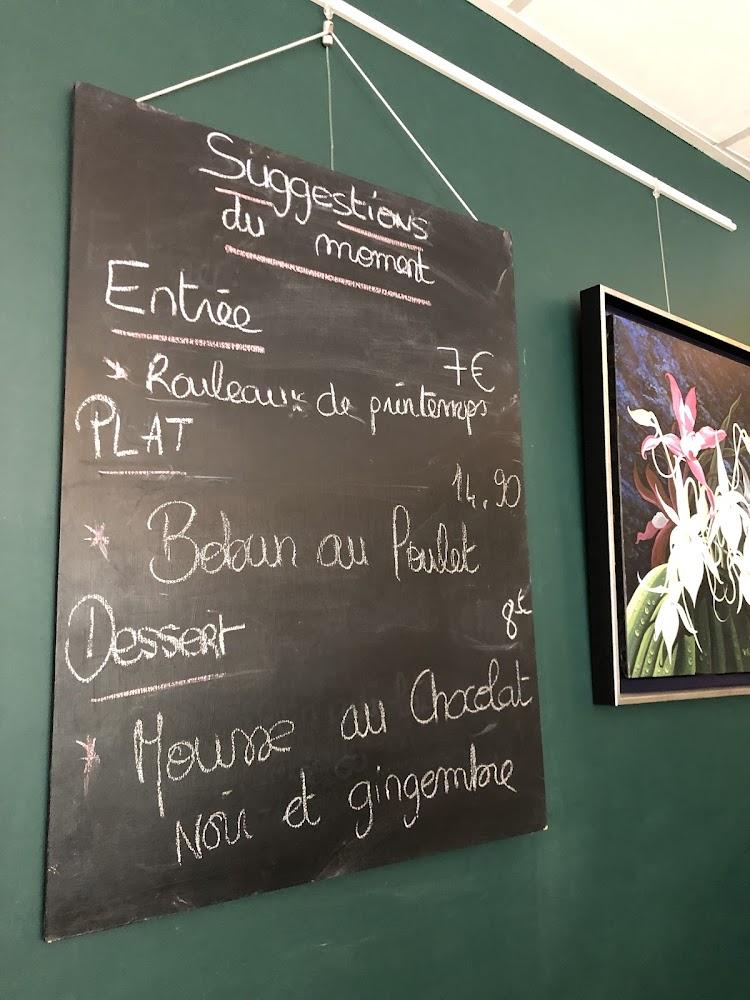 Suggestions
du moment
Entrée
7€
Rouleaux de printemps
PLAT
14,90
Bobun au Poulet
Dessert
8€
Mousse au Chocolat
Noir et gingembre